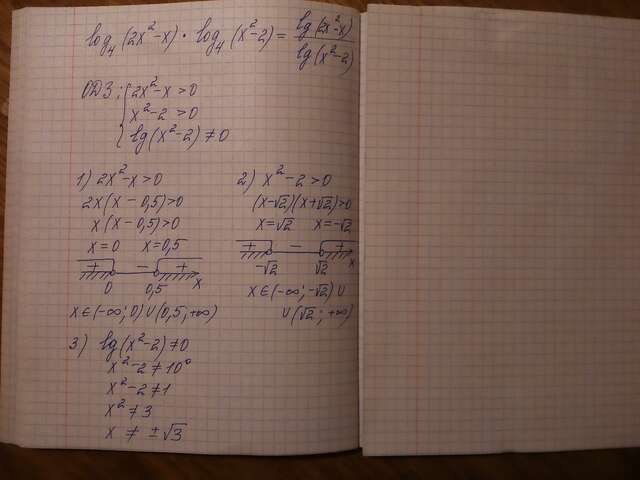 log₄(2x²-x)·log₄(x²-2) = lg(2x²-x)/lg(x²-2)
ОДЗ: { 2x²-x>0
x²-2>0
lg(x²-2)≠0
1) 2x²-x>0
2x(x-0,5)>0
x(x-0,5)>0
x=0 x=0,5
+ - +
0 0,5 x
x∈(-∞;0)∪(0,5;+∞)
2) x²-2>0
(x-√2)(x+√2)>0
x=√2 x=-√2
+ - +
-√2 √2 x
x∈(-∞;-√2)∪
∪(√2;+∞)
3) lg(x²-2)≠0
x²-2≠10⁰
x²-2≠1
x²≠3
x ≠ ±√3